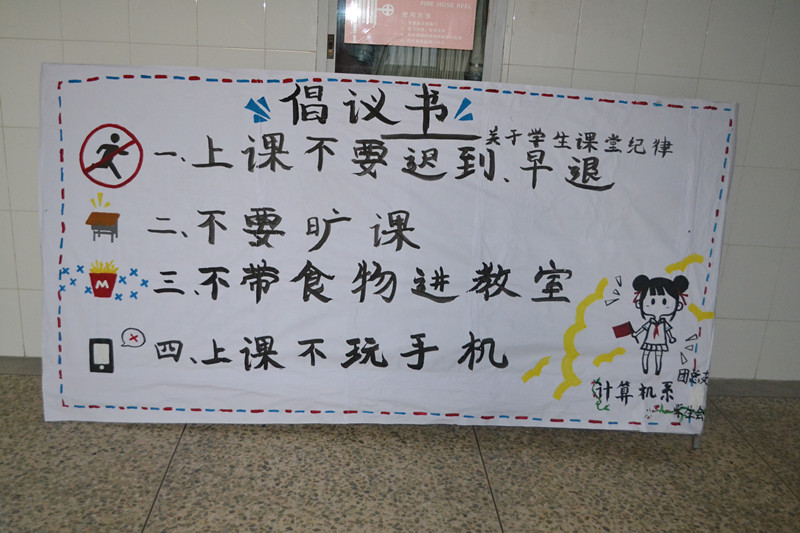 FIRE HOSE REEL
倡议书
关于学生课堂纪律
一、上课不要迟到、早退
二、不要旷课
三、不带食物进教室
M
四、上课不玩手机
计算机系
团总支
学生会